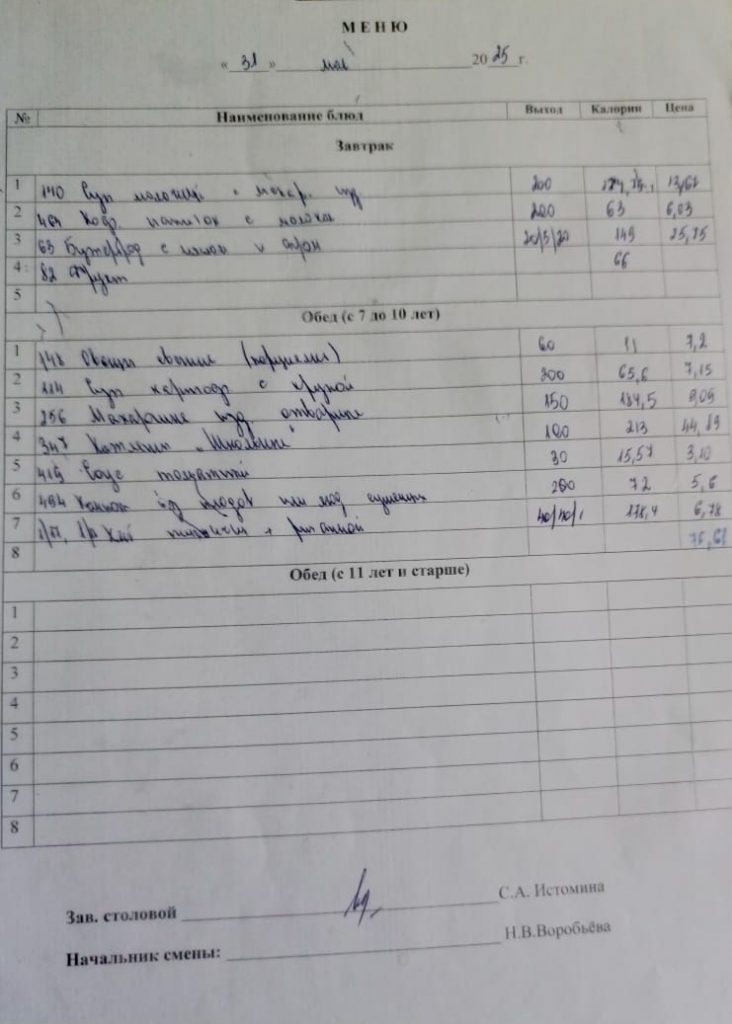 МЕНЮ
« 31 » мая 2025 г.
№ Наименование блюд Выход Калории Цена
Завтрак
1 140 Суп молочный с макар. изд 200
2 464 Коф. напиток с молоком 200 63 6,03
3 63 Бутерброд с маслом и сыром 20/5/20 149 25,85
4 82 Фрукт 66
5
Обед (с 7 до 10 лет)
1 148 Овощи свежие 60 11 7,2
2 114 Суп картоф с крупой 200 65,6 7,15
3 256 Макароные изд отварные 150 184,5
4 347 Котлеты „Школьные" 100 213
5 419 Соус томатный 30 15,57 3,10
6 494 Компот из плодов или ягод сушеных 200 72 5,6
7 Хлеб пшеничный + ржаной 40/40 6,78
8
Обед (с 11 лет и старше)
1
2
3
4
5
6
7
8
Зав. столовой С.А. Истомина
Начальник смены: Н.В.Воробьёва